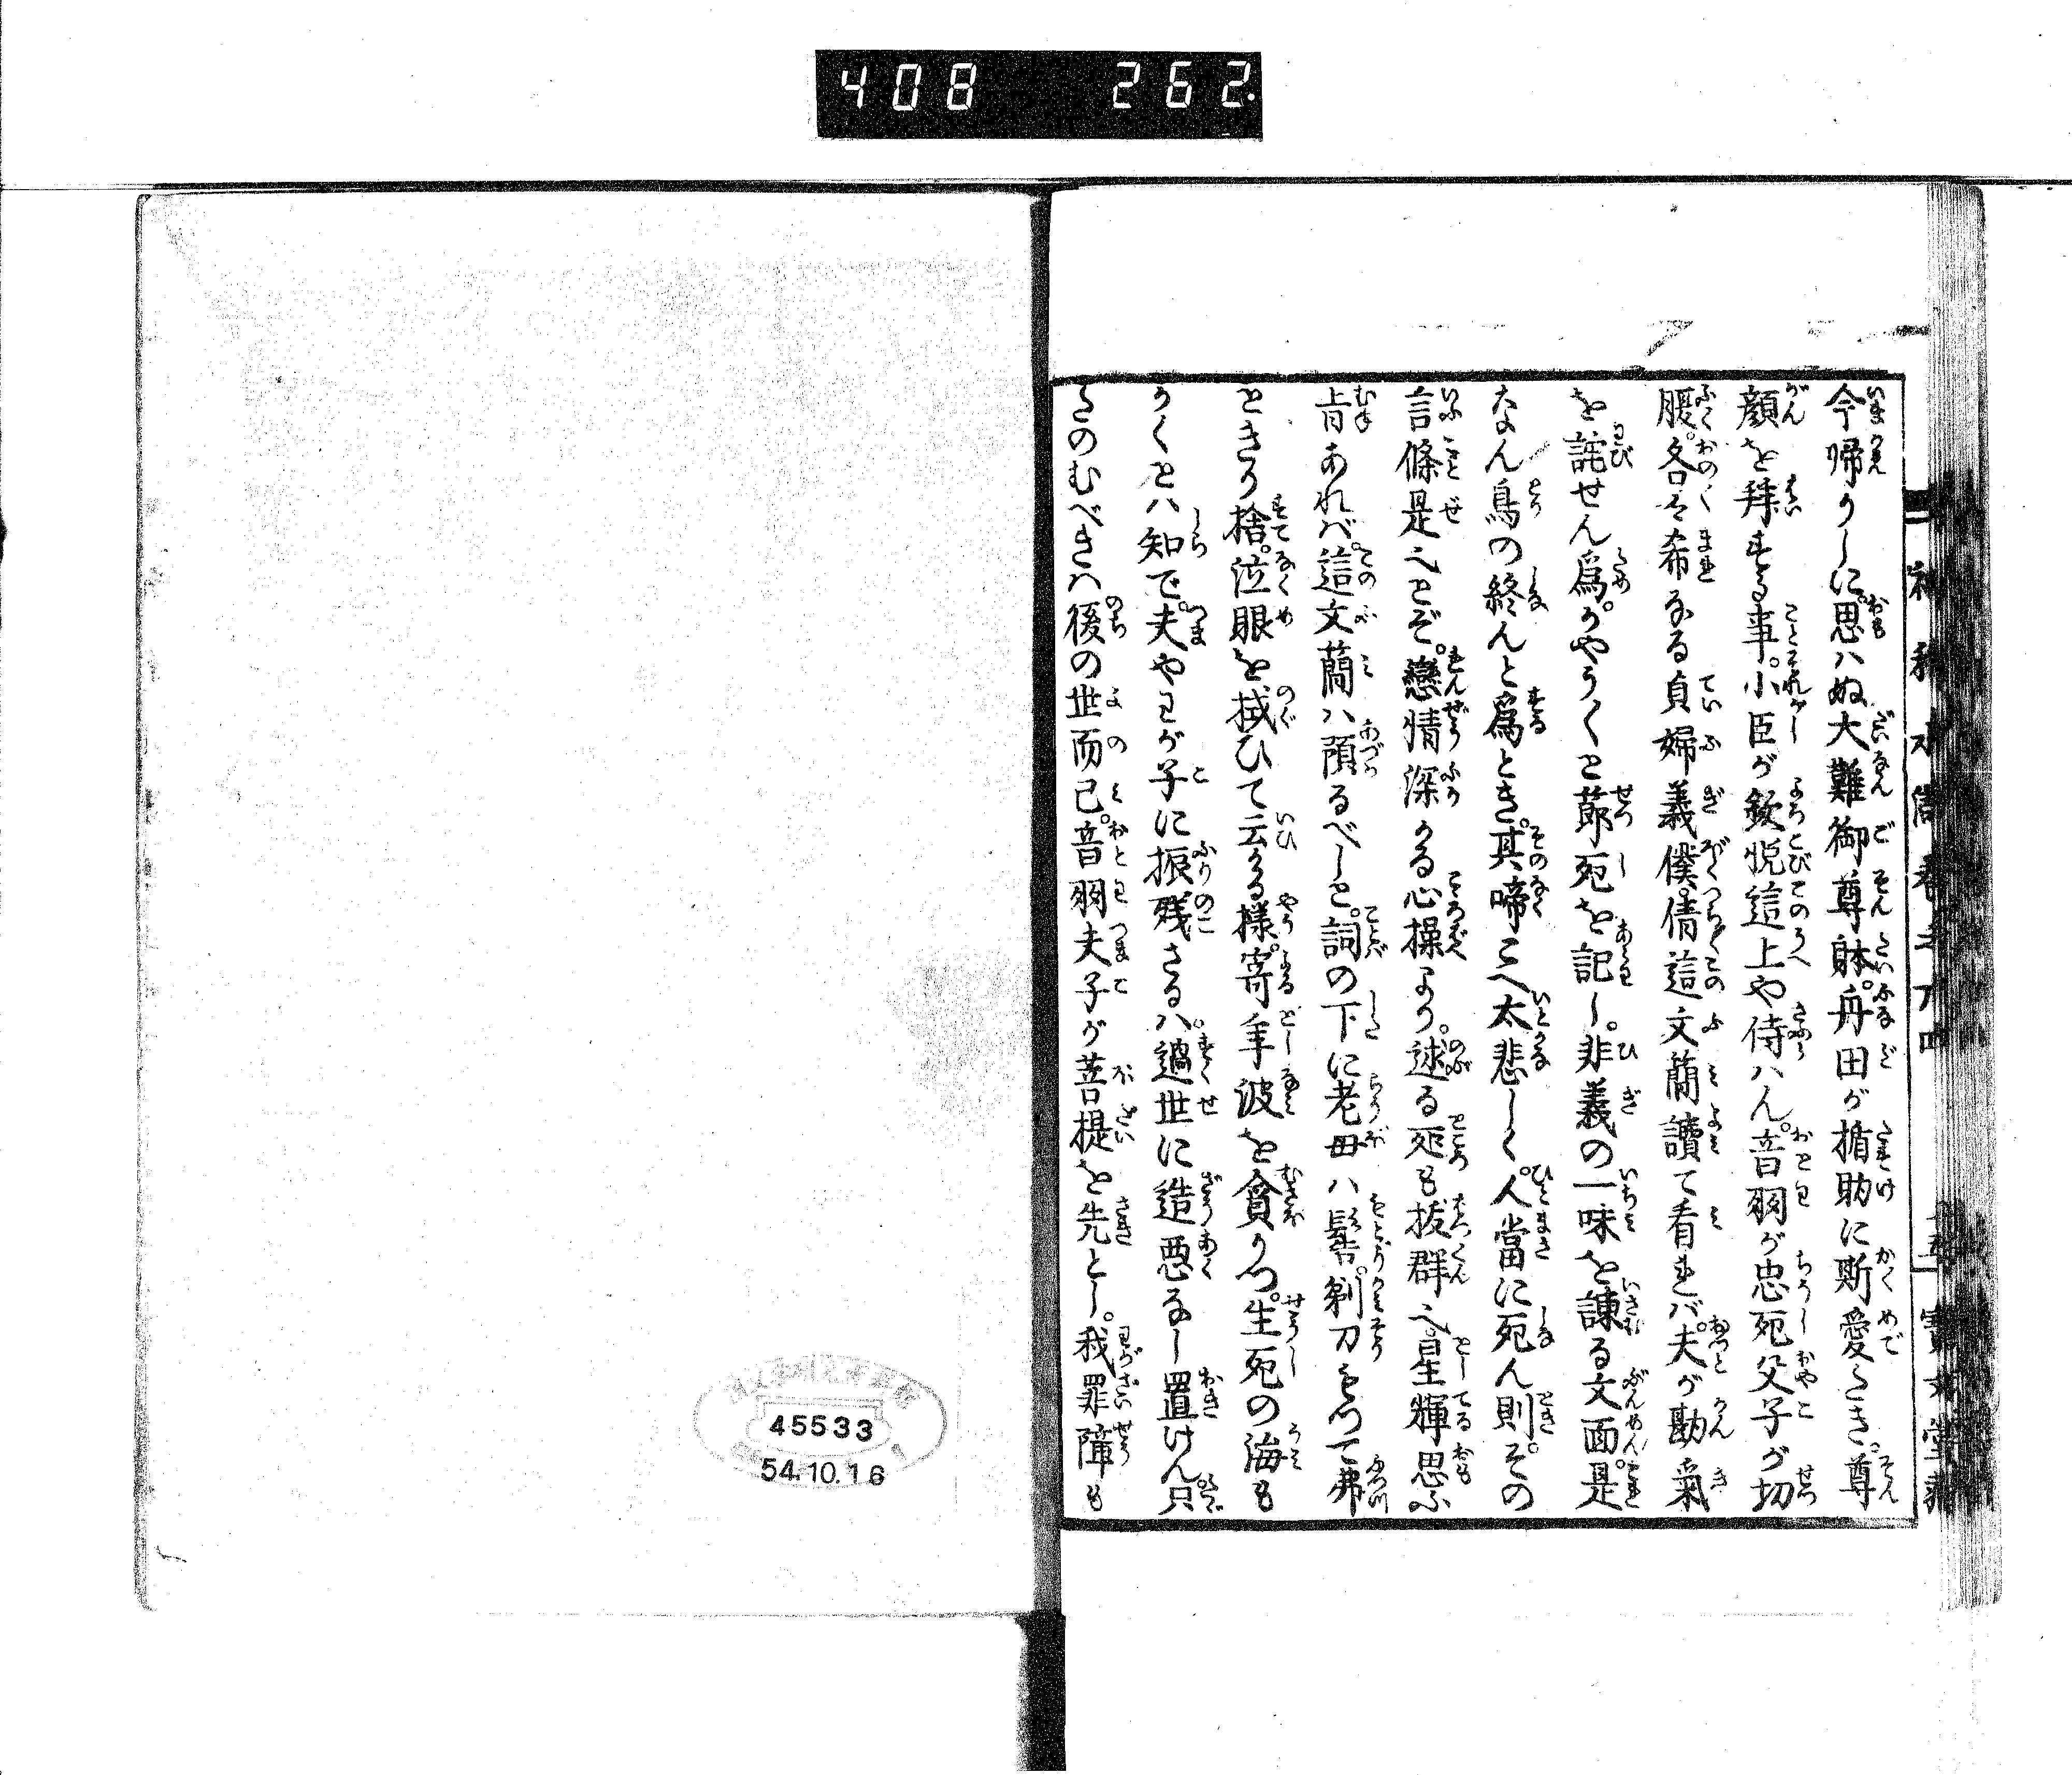 408 262.
今帰りしに。思ハぬ大難御尊躰。舟田が楯助に斯愛たき。尊
顔を拝する事。小臣が歓悦這上や侍ハん。音羽が忠死父子が切
腹。各々希なる貞婦義僕。倩這文簡讀て看れバ。夫が勘氣
を詫せん爲。かやう〳〵と節死を記し。非義の一味を諫る文面。是
なん鳥の終んと爲とき。其啼こへ太悲しく。人當に死ん則。その
言條是へとぞ。戀情深かる心操より。述る処も抜群へ。星輝思ふ
旨あれバ。這文簡ハ預るべしと。詞の下に老母ハ髻。剃刀もつて弗
ときり捨。泣眼を拭ひて云かる様。寄年波を貪りつ。生死の海も
かくとハ知で。夫やわが子に振残さるハ。過世に造悪なし置けん只
たのむべきハ後の世而已。音羽夫子が菩提を先とし。我罪障も
45533
54.10.16